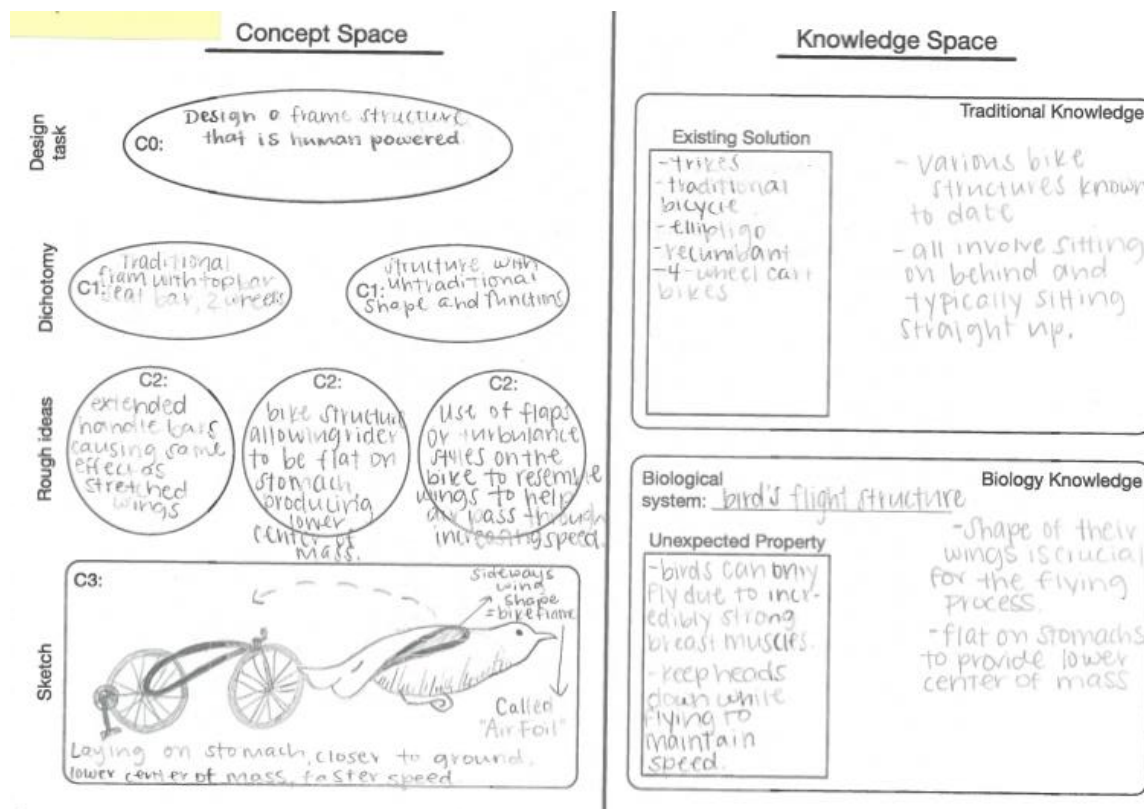 Concept Space
Design task
C0:
Design a frame structure
that is human powered.
Dichotomy
C1:
Traditional
fram with top bar
seat bar, 2 wheels
C1:
structure with
untraditional
shape and functions
Rough ideas
C2:
extended
handle bars
causing same
effect as
stretched
wings
C2:
bike structure
allowing rider
to be flat on
stomach
producing
lower
center of
mass.
C2:
use of flaps
or turbulance
styles on the
bike to resemble
wings to help
air pass through
increasing speed.
Sketch
C3:
sideways
wing
shape
= bike frame
Called
"Air Foil"
Laying on stomach, closer to ground,
lower center of mass, faster speed
Knowledge Space
Traditional Knowledge
Existing Solution
-trikes
-traditional
bicycle
-elliptigo
-recumbant
-4-wheel cart
bikes
- various bike
structures known
to date
- all involve sitting
on behind and
typically sitting
straight up.
Biology Knowledge
Biological
system: bird's flight structure
Unexpected Property
-birds can only
fly due to incr-
edibly strong
breast muscles.
-keep heads
down while
flying to
maintain
speed.
-shape of their
wings is crucial
for the flying
process.
-flat on stomachs
to provide lower
center of mass